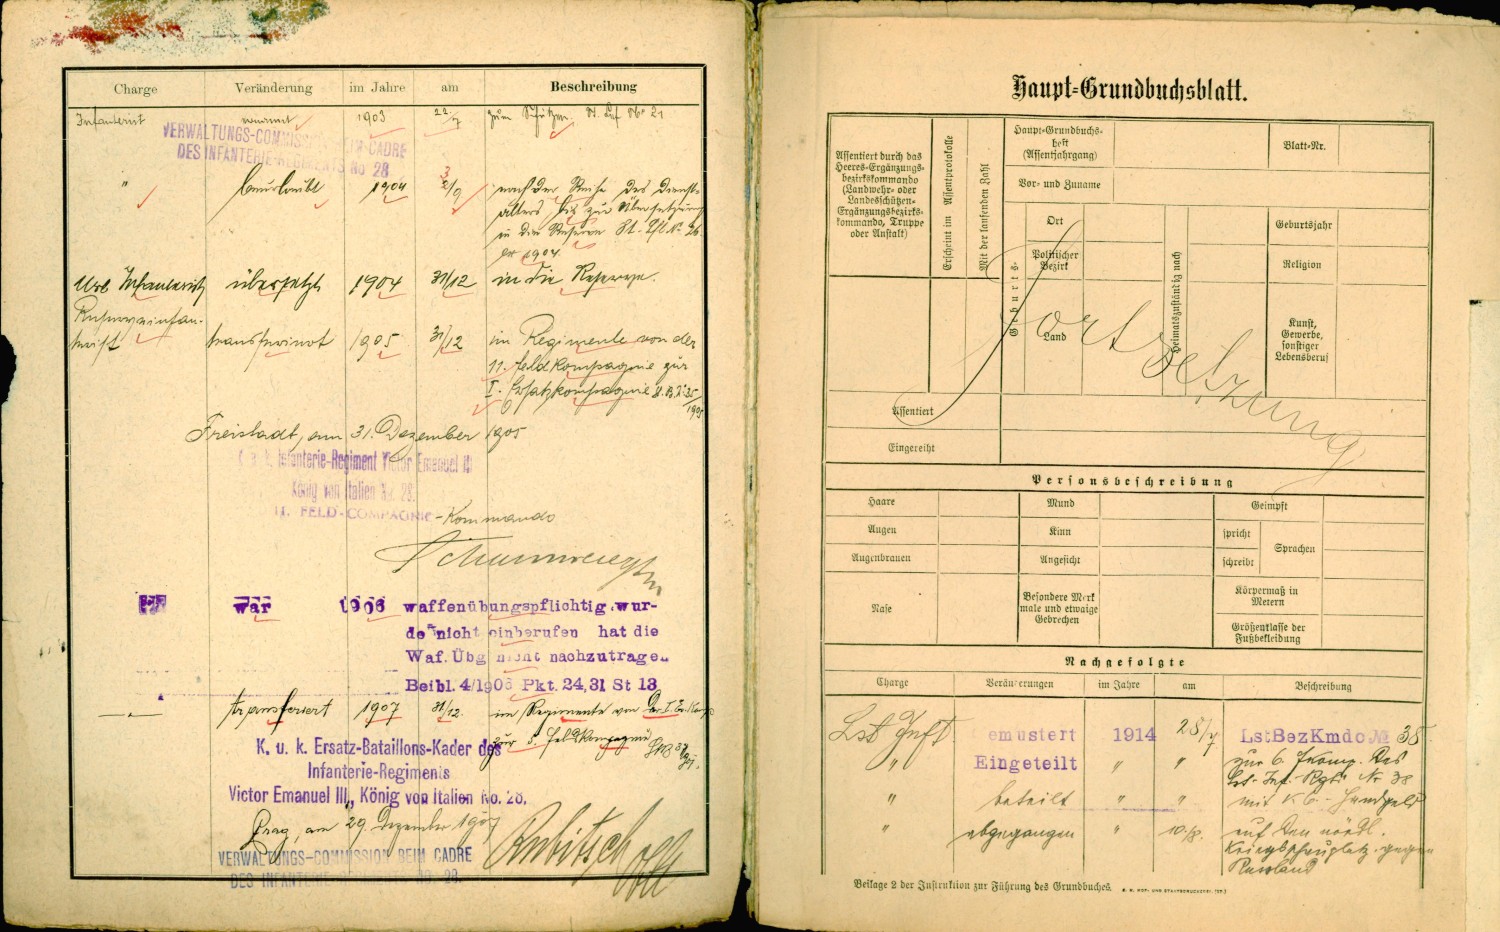 Charge Veränderung im Jahre am Beschreibung
Infanterist 1903 22/7 zum
VERWALTUNGS-COMMISSION BEIM CADRE
DES INFANTERIE-REGIMENTS No 28.
" beurlaubt 1904 /9 nach der Reihe des Dienst-
alters bis zur Übersetzung
in die Reserve
1904.
Url Infanterist übersetzt 1904 31/12 in die Reserve.
Reserveinfan-
terist transferiert 1905 31/12 im Regimente von der
11. Feldkompagnie zur
I. Ersatzkompagnie
1905
Freistadt, am 31. Dezember 1905
k. u. k. Infanterie-Regiment Victor Emanuel III
König von Italien No. 28.
11. FELD-COMPAGNIE-Kommando
war 1906 waffenübungspflichtig wur-
de nicht einberufen hat die
Waf. Übg nicht nachzutragen
Beibl. 4/1906 Pkt. 24,31 St 13
transferiert 1907 31/12. im Regimente von der I. Ers. Komp
zur 5. Feldkompagnie
K. u. k. Ersatz-Bataillons-Kader des
Infanterie-Regiments
Victor Emanuel III, König von Italien No. 28.
Prag, am 29. Dezember 1907
VERWALTUNGS-COMMISSION BEIM CADRE
DES INFANTERIE-REGIMENTS No. 28.
Haupt-Grundbuchsblatt.
Assentiert durch das
Heeres-Ergänzungs-
bezirkskommando
(Landwehr- oder
Landesschützen-
Ergänzungsbezirks-
kommando, Truppe
oder Anstalt)
Erscheint im Assentprotokolle
Mit der laufenden Zahl
Haupt-Grundbuchs-
heft
(Assentjahrgang)
Blatt-Nr.
Vor- und Zuname
Geburts-
Ort
Politischer
Bezirk
Land
Heimatszuständig nach
Geburtsjahr
Religion
Kunst,
Gewerbe,
sonstiger
Lebensberuf
Fortsetzung
Assentiert
Eingereiht
Personsbeschreibung
Haare Mund Geimpft
Augen Kinn spricht Sprachen
Augenbrauen Angesicht schreibt
Nase
Besondere Merk
male und etwaige
Gebrechen
Körpermaß in
Metern
Größenklasse der
Fußbekleidung
Nachgefolgte
Charge Veränderungen im Jahre am Beschreibung
Lst Inft emustert 1914 28/7 LstBezKmdo № 38
" Eingeteilt " " zur 6. Fkomp. des
Lst.-Inf.-Rgts Nr 38
" beteilt " " mit K 6.- Handgeld
" abgegangen " 10./8. auf den nördl.
Kriegsschauplatz gegen
Russland
Beilage 2 der Instruktion zur Führung des Grundbuches. K. K. HOF- UND STAATSDRUCKEREI.